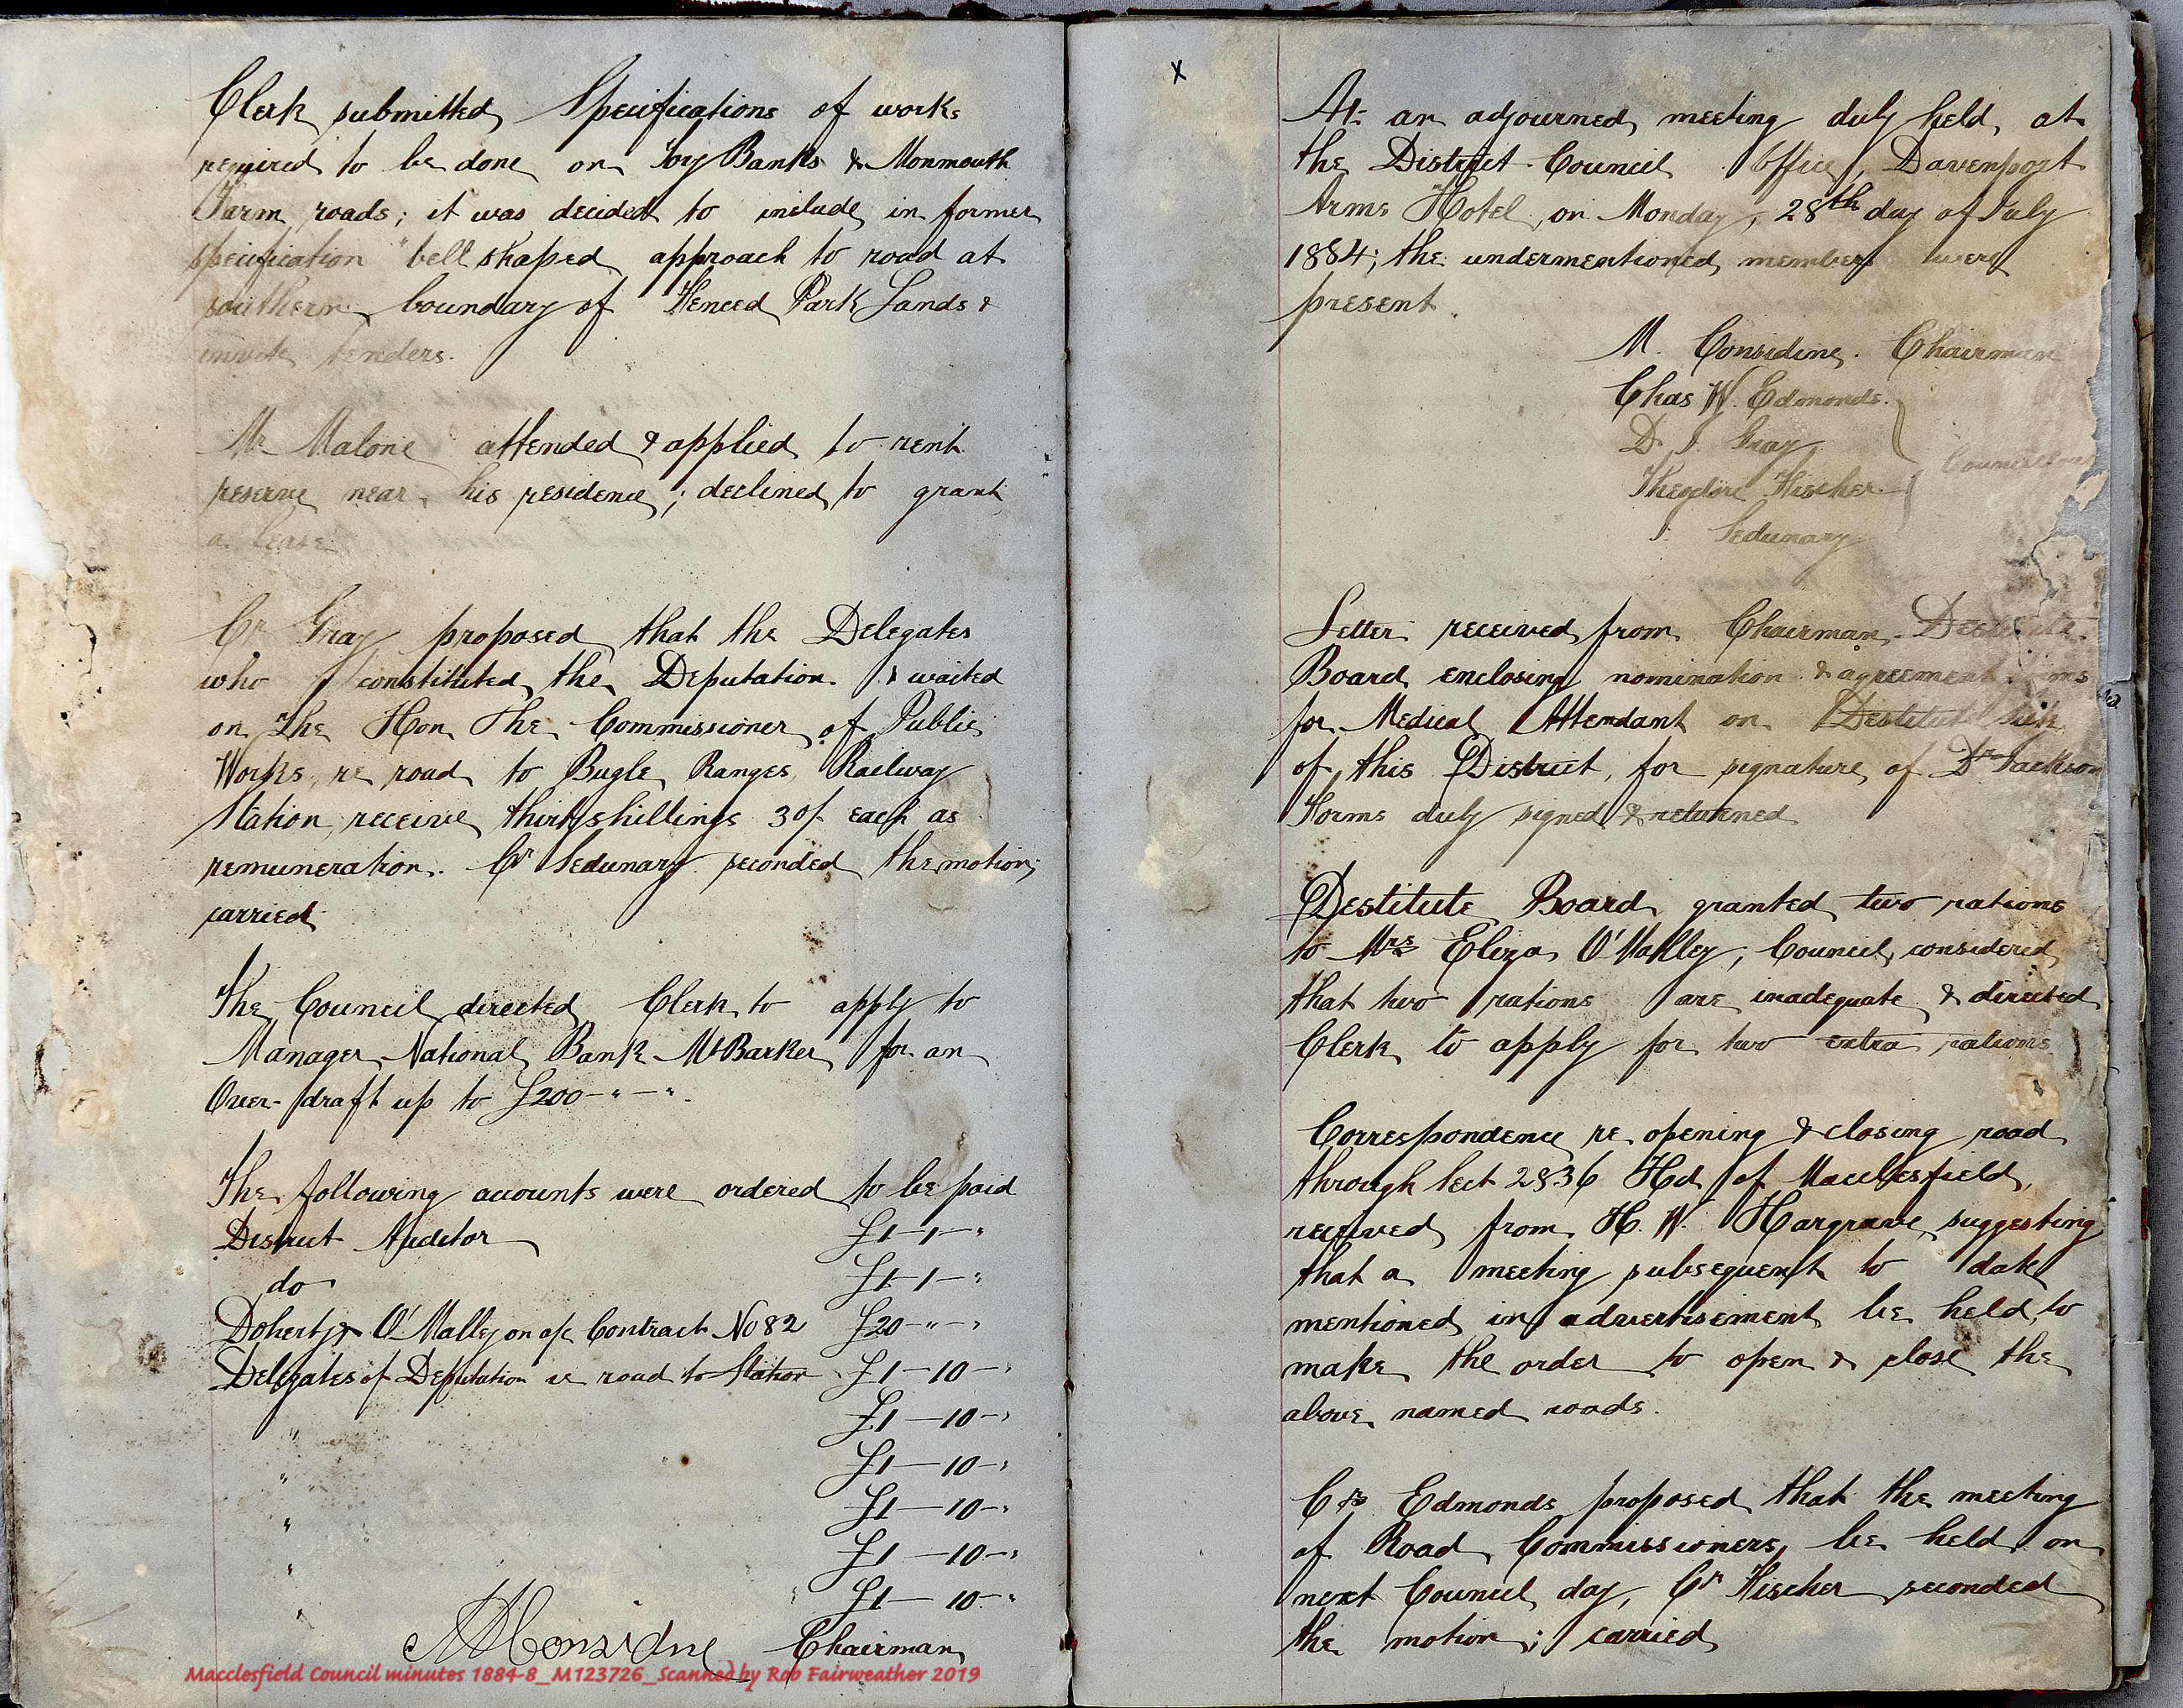 Clerk submitted Specifications of works
required to be done on Ivy Banks & Monmouth
Farm roads; it was decided to include in former
specification "bell shaped approach to road at
southern boundary of Fenced Park Lands &
invite tenders.
Mr Malone attended & applied to rent
reserve near his residence; declined to grant
a lease
Cr Gray proposed that the Delegates
who constituted the Deputation & waited
on The Hon The Commissioner of Public
Works, re road to Bugle Ranges Railway
Station receive thirty shillings 30/- each as
remuneration. Cr Sedunary seconded the motion;
carried
The Council directed Clerk to apply to
Manager National Bank Mt Barker for an
Over-draft up to £200-"-".
The following accounts were ordered to be paid
District Auditor £1-1-"
do £1-1-"
Doherty & O'Malley on a/c Contract No 82 £20-"-"
Delegates of Deputation re road to Station £1-10-"
" £1-10-"
" £1-10-"
" £1-10-"
" £1-10-"
" £1-10-"
M Considine Chairman
Macclesfield Council minutes 1884-8_M123726_Scanned by Rob Fairweather 2019
x
At an adjourned meeting duly held at
the District Council Office, Davenport
Arms Hotel, on Monday, 28th day of July
1884; the undermentioned members were
present.
M. Considine. Chairman
Chas W. Edmonds.
D. J. Gray
Councillors
Theodore Fischer
J. Sedunary
Letter received from Chairman Destitute
Board enclosing nomination & agreement forms
for Medical Attendant on Destitute sick
of this District, for signature of Dr Jackson
Forms duly signed & returned
Destitute Board granted two rations
to Mrs Eliza O'Malley; Council considered
that two rations are inadequate & directed
Clerk to apply for two extra rations
Correspondence re opening & closing road
through Sect 2836 Hd of Macclesfield,
received from H. W. Hargrave suggesting
that a meeting subsequent to date
mentioned in advertisement be held to
make the order to open & close the
above named roads.
Cr Edmonds proposed that the meeting
of Road Commissioners be held on
next Council day, Cr Fischer seconded
the motion; carried